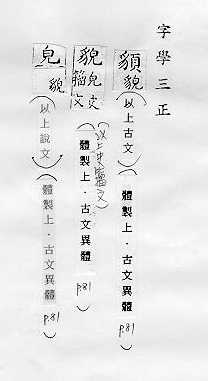 字學三正
貌(以上古文)(體製上．古文異體 p.81)
貌(以上史籀文)(體製上．古文異體 p.81)
皃貌(以上說文)(體製上．古文異體 p.81)